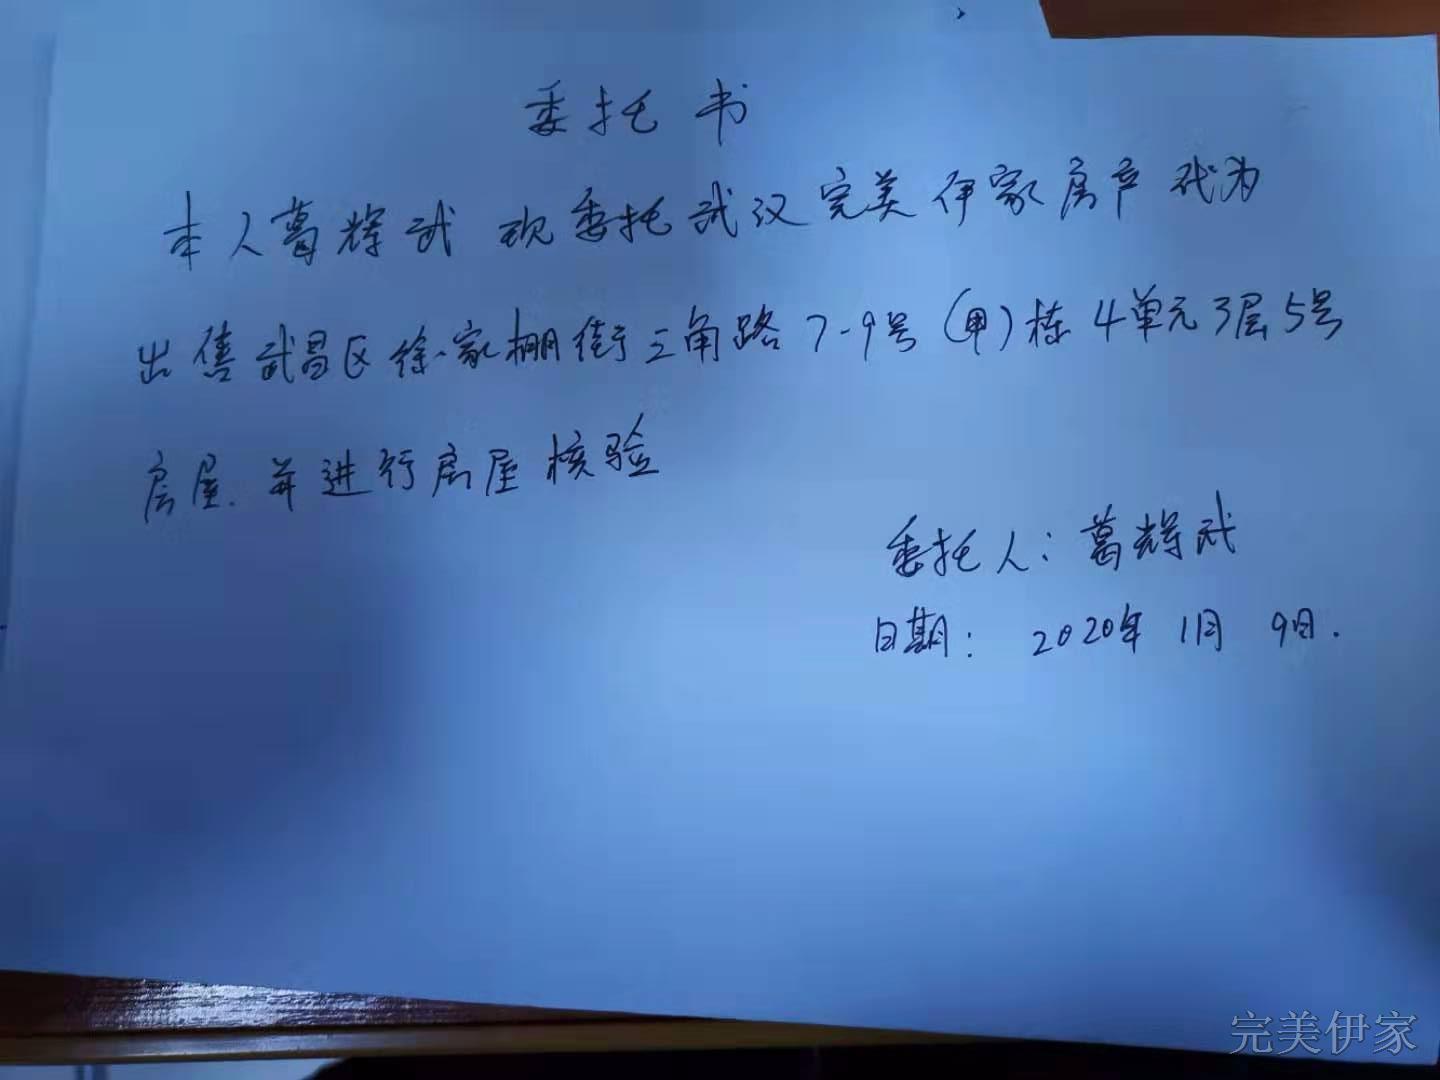 委托书
本人葛辉武 现委托武汉完美伊家房产代为
出售武昌区徐家棚街三角路7-9号(甲)栋4单元3层5号
房屋.并进行房屋核验
委托人:葛辉武
日期: 2020年1月9日.
完美伊家